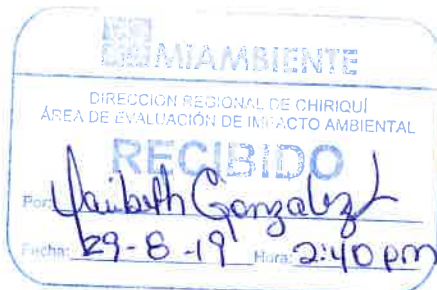 MIAMBIENTE
DIRECCIÓN REGIONAL DE CHIRIQUÍ
ÁREA DE EVALUACIÓN DE IMPACTO AMBIENTAL
RECIBIDO
Por: Yaribeth Gonzalez
Fecha: 29-8-19 Hora: 2:40 pm